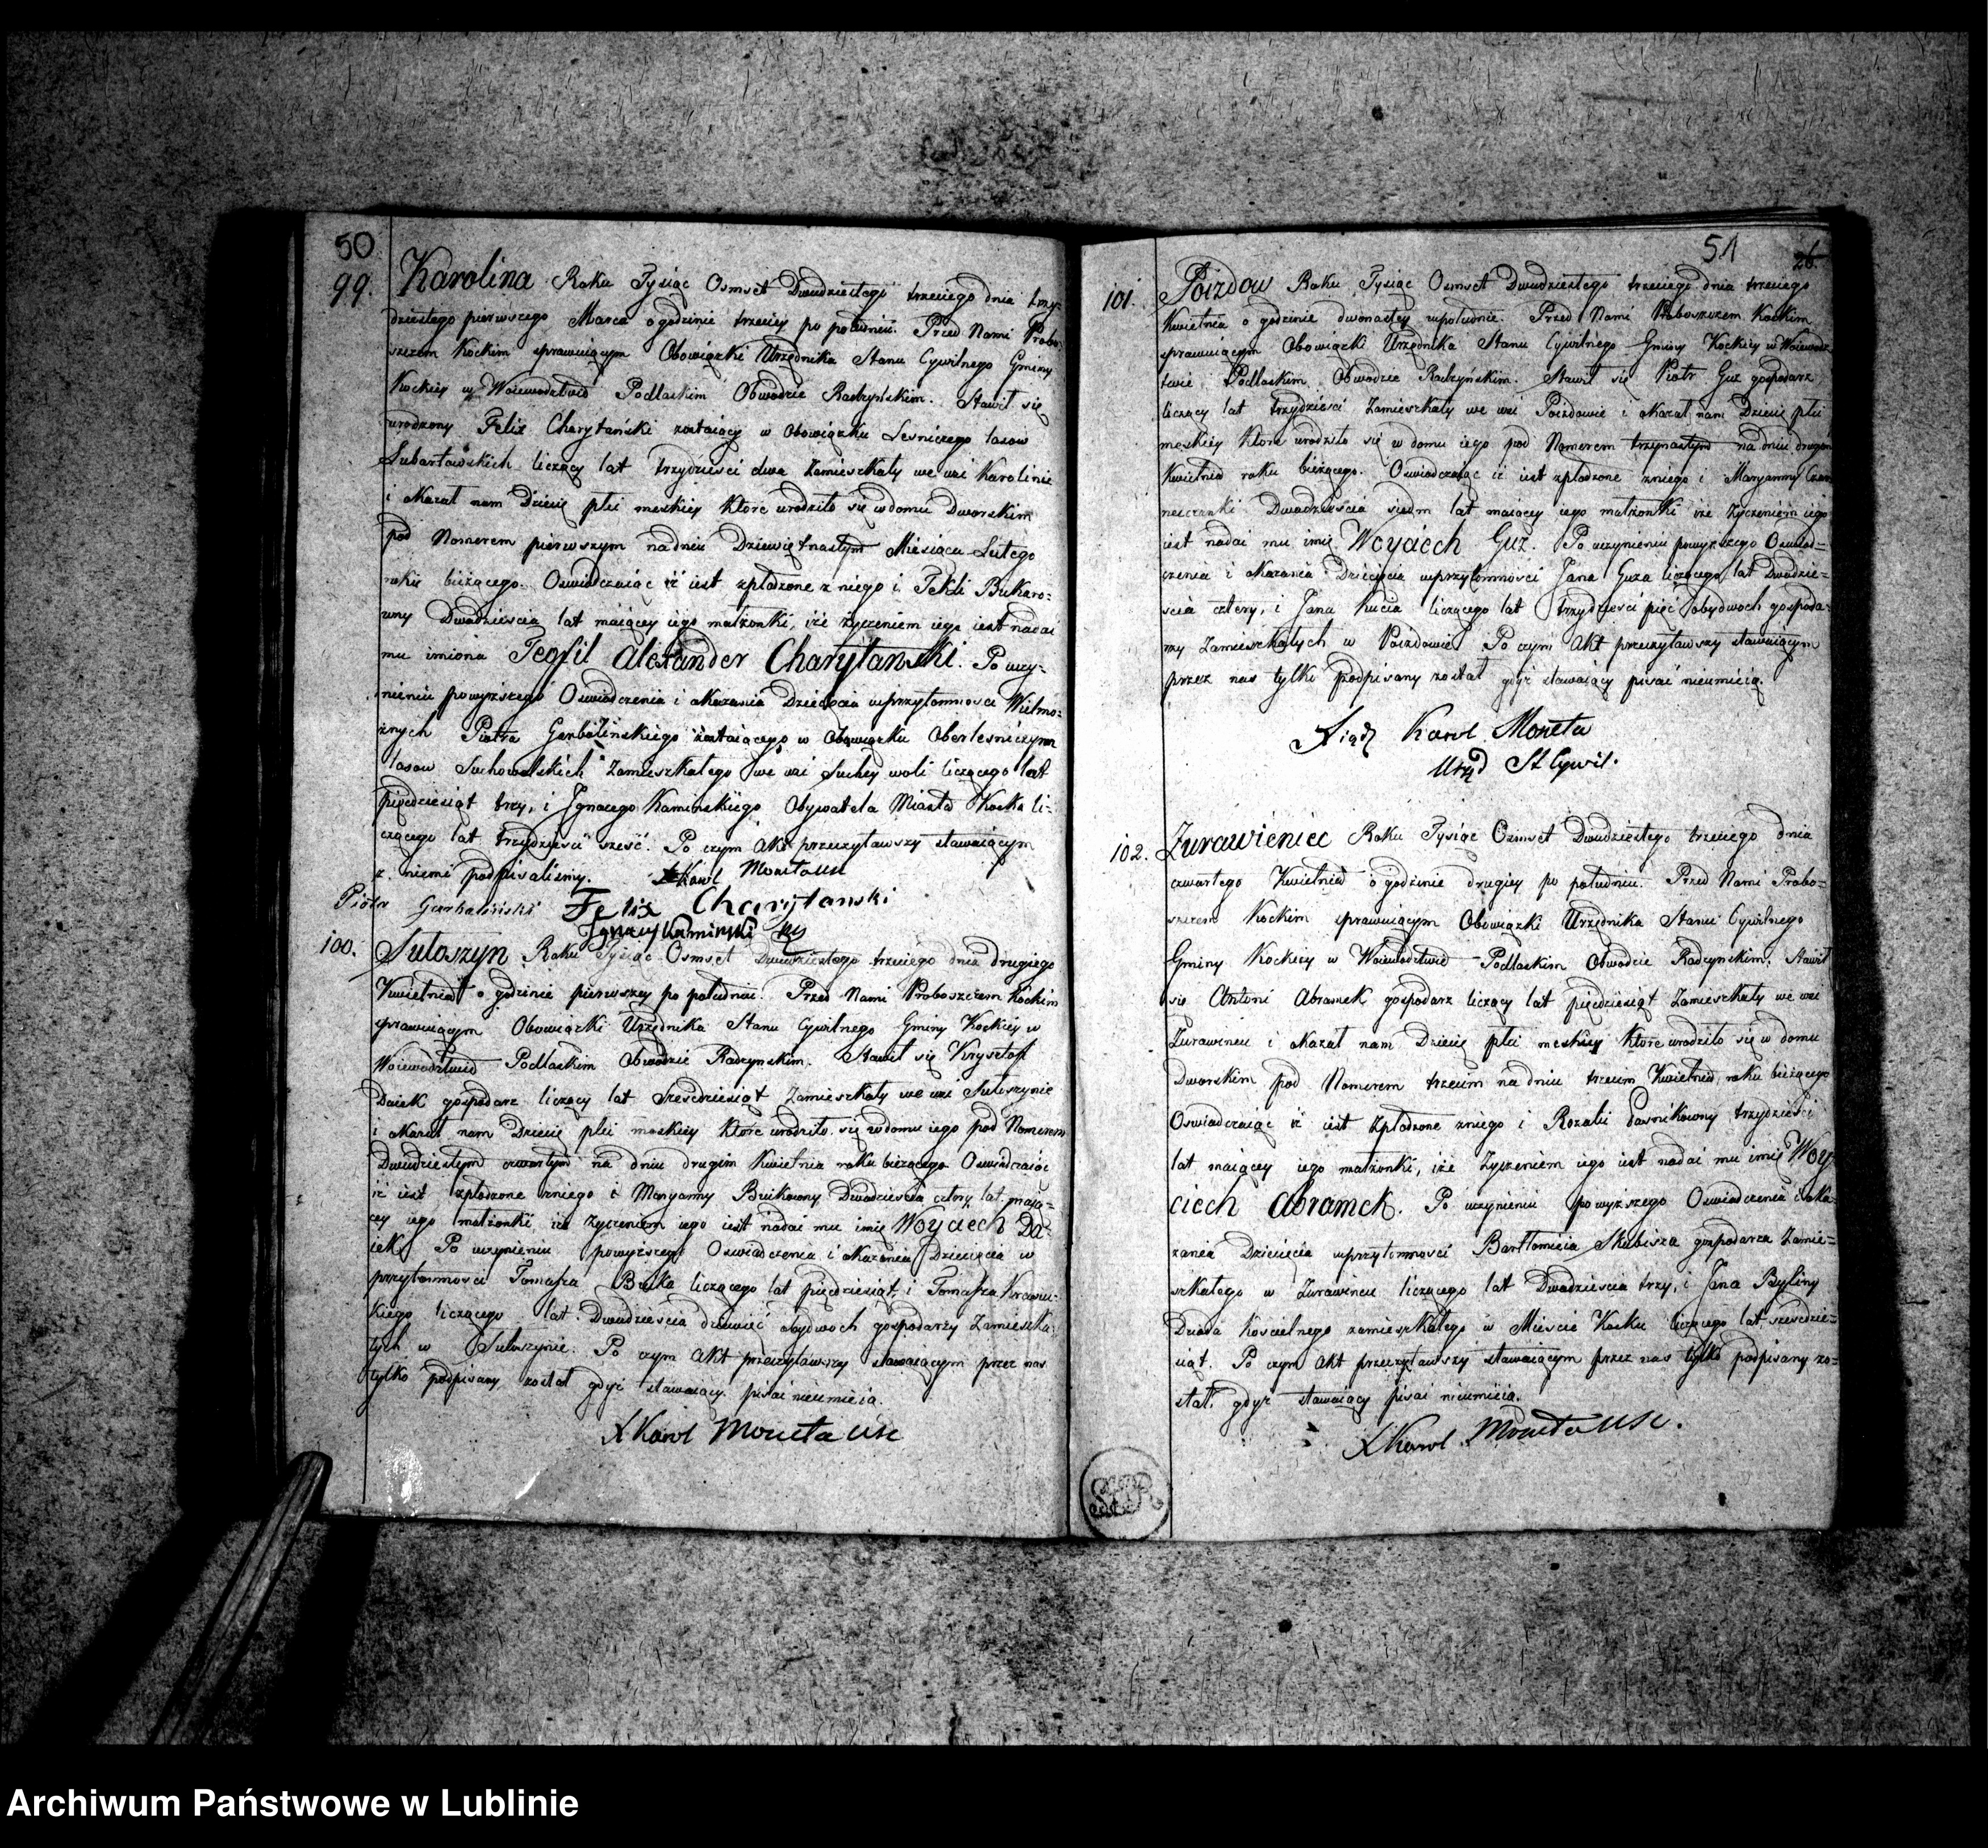 50
99. Karolina Roku Tysiąc Osmset Dwudziestego trzeciego dnia trzy-
dziestego pierwszego Marca o godzinie trzeciey po południu. Przed Nami Probo-
szczem Kockim sprawuiącym Obowiązki Urzędnika Stanu Cywilnego Gminy
Kockiey w Woiewodztwie Podlaskim Obwodzie Radzyńskim. Stawił się
urodzony Felix Charytański zostaiący w Obowiązku Lesniczego lasow
Lubartowskich liczący lat trzydzieści dwa Zamieszkały we wsi Karolinie
i okazał nam Dziecię płci męskiey które urodziło się w domu Dworskim
pod Numerem pierwszym na dniu Dziewiętnastym Miesiąca Lutego
roku bieżącego. Oswiadczaiąc iż iest spłodzone z niego i Tekli Bukaro-
wny Dwadzieścia lat maiącey iego małżonki, iże życzeniem iego iest nadać
mu imiona Teofil Alexander Charytanski. Po uczy-
nieniu powyższego Oswiadczenia i okazania Dziecięcia w przytomności Wielmo-
żnych Piotra Garbalińskiego zostaiącego w Obowiązku Oberlesniczym
lasow Suchowolskich Zamieszkałego we wsi Suchey woli liczącego lat
pięcdziesiąt trzy, i Jgnacego Kaminskiego Obywatela Miasta Kocka li-
czącego lat trzydzieści sześć. Po czym Akt przeczytawszy stawaiącym
z niemi podpisaliśmy. X Karol Moneta USC
Piotr Garbaliński Felix Charytanski
Jgnacy Kaminski
100. Sułoszyn Roku Tysiąc Osmset Dwudziestego trzeciego dnia drugiego
Kwietnia o godzinie pierwszey po południu. Przed Nami Proboszczem Kockim
sprawuiącym Obowiązki Urzędnika Stanu Cywilnego Gminy Kockiey w
Woiewodztwie Podlaskim Obwodzie Radzynskim. Stawił się Krysztof
Daiek gospodarz liczący lat Sześcdziesiąt Zamieszkały we wsi Sułoszynie
i okazał nam Dziecię płci męskiey które urodziło się w domu iego pod Numerem
Dwudziestym czwartym na dniu drugim Kwietnia roku bieżącego Oswiadczaiąc
iż iest spłodzone z niego i Maryanny Buikowny Dwadzieścia cztery lat maią-
cey iego małżonki iże życzeniem iego iest nadać mu imię Woyciech Da-
iek. Po uczynieniu powyższego Oswiadczenia i okazania Dziecięcia w
przytomności Tomasza Buka liczącego lat pięcdziesiąt, i Tomasza
kiego liczącego lat Dwadzieścia dziewięć obydwoch gospodarzy Zamieszka-
łych w Sułoszynie. Po czym Akt przeczytawszy stawaiącym przez nas
tylko podpisany został gdyż stawaiący pisać nieumieią.
X Karol Moneta USC
51 26.
101. Poizdow Roku Tysiąc Osmset Dwudziestego trzeciego dnia trzeciego
Kwietnia o godzinie dwonastey w południe. Przed Nami Proboszczem Kockim
sprawuiącym Obowiązki Urzędnika Stanu Cywilnego Gminy Kockiey w Woiewodz-
twie Podlaskim Obwodzie Radzyńskim. Stawił się Piotr Guz gospodarz
liczący lat trzydzieści Zamieszkały we wsi Poizdowie i okazał nam Dziecię płci
męskiey które urodziło się w domu iego pod Numerem trzynastym na dniu drugim
Kwietnia roku bieżącego. Oswiadczaiąc iż iest spłodzone z niego i Maryanny
Dwadzieścia siedm lat maiącey iego małżonki iże życzeniem iego
iest nadać mu imię Woyciech Guz. Po uczynieniu powyższego Oswiad-
czenia i okazania Dziecięcia w przytomności Jana Guza liczącego lat Dwadzie-
ścia cztery, i Jana Kucia liczącego lat trzydzieści pięć obydwoch gospoda-
rzy Zamieszkałych w Poizdowie Po czym Akt przeczytawszy stawaiącym
przez nas tylko podpisany został gdyż stawaiący pisać nieumieią.
Xiądz Karol Moneta
Urzęd St Cywil.
102. Zurawieniec Roku Tysiąc Osmset Dwudziestego trzeciego dnia
czwartego Kwietnia o godzinie drugiey po południu. Przed Nami Probo-
szczem Kockim sprawuiącym Obowiązki Urzędnika Stanu Cywilnego
Gminy Kockiey w Woiewodztwie Podlaskim Obwodzie Radzynskim. Stawił
się Antoni Abramek gospodarz liczący lat pięcdziesiąt Zamieszkały we wsi
Zurawincu i okazał nam Dziecię płci męskiey które urodziło się w domu
Dworskim pod Numerem trzecim na dniu trzecim Kwietnia roku bieżącego
Oswiadczaiąc iż iest Spłodzone z niego i Rozalii trzydzieści
lat maiącey iego małżonki, iże życzeniem iego iest nadać mu imię Woy-
ciech Abramek. Po uczynieniu powyższego Oswiadczenia i oka-
zania Dziecięcia w przytomności Bartłomieia Skubisza gospodarza Zamie-
szkałego w Zurawincu liczącego lat Dwadzieścia trzy, i Jana Byliny
Dziada Kościelnego zamieszkałego w Mieście Kocku liczącego lat sześcdzie-
siąt. Po czym Akt przeczytawszy stawaiącym przez nas tylko podpisany zo-
stał, gdyż stawaiący pisać nieumieią.
X Karol Moneta USC.
Archiwum Państwowe w Lublinie